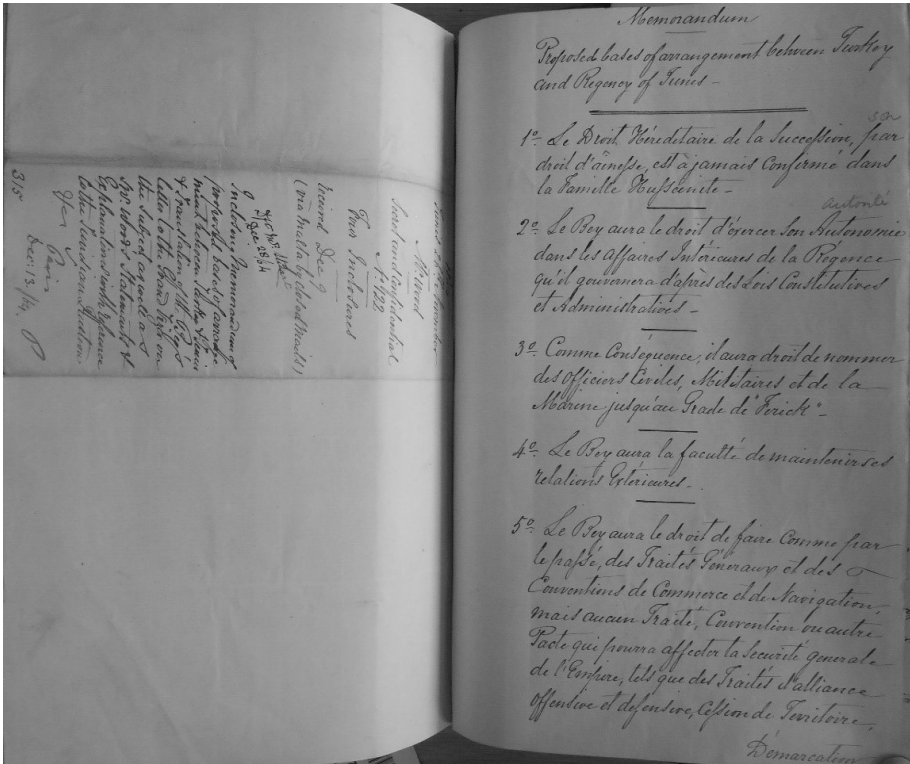 Mr Wood
Secret and Confidential
Nº 22
Four Inclosures
Received Dec 9
(via Malta by closed Mails)
Inclosing Memorandum of
proposed bases of arrange
ment between Porte & Tunis
& Translation of the Bey's
letter to the Grand Vizir on
the subject, as well as
Mr. Wood's Statements &
Explanations with reference
to the Tunisian Question
Paris
Dec: 13/64
315
Memorandum
Proposed bases of arrangement between Turkey
and Regency of Tunis –
1º. Le Droit Héréditaire de la Succession, par
droit d'aînesse, est à jamais Confirmé dans
la Famille Husseinite –
Autorité
2º. Le Bey aura le droit d'exercer son Autonomie
dans les affaires Intérieures de la Régence
qu'il gouvernera d'après des Lois Constitutives
et Administratives –
3º. Comme Conséquence, il aura droit de nommer
des Officiers Civiles, Militaires et de la
Marine jusqu'au Grade de "Ferick" –
4º. Le Bey aura la faculté de maintenir ses
relations Extérieures –
5º. Le Bey aura le droit de faire Comme par
le passé, des Traités Géneraux et des
Conventions de Commerce et de Navigation,
mais aucun Traité, Convention ou autre
Pacte qui pourra affecter la Securité generale
de l'Empire, tels que des Traités d'alliance
offensive et defensive, Cession de Territoire,
Démarcation